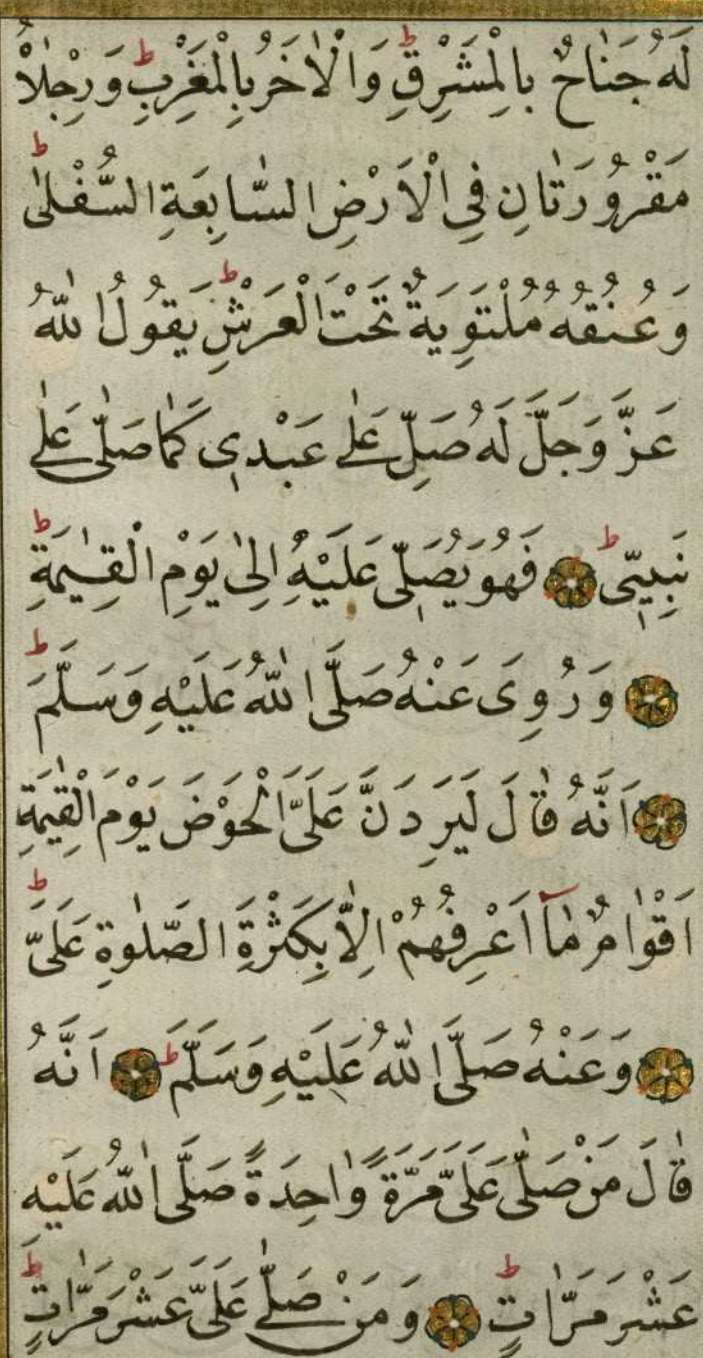 لَهُ جَنَاحٌ بِالْمَشْرِقِ ط وَالْاٰخَرُ بِالْمَغْرِبِ ط وَرِجْلَاهُ
مَقْرُورَتَانِ فِي الْاَرْضِ السَّابِعَةِ السُّفْلٰى ط
وَعُنُقُهُ مُلْتَوِيَةٌ تَحْتَ الْعَرْشِ ط يَقُولُ اللّٰهُ
عَزَّ وَجَلَّ لَهُ صَلِّ عَلٰى عَبْدِى كَمَا صَلّٰى عَلٰى
نَبِيِّى ط فَهُوَ يُصَلِّى عَلَيْهِ اِلٰى يَوْمِ الْقِيٰمَةِ ط
وَرُوِىَ عَنْهُ صَلَّى اللّٰهُ عَلَيْهِ وَسَلَّمَ ط
اَنَّهُ قَالَ لَيَرِدَنَّ عَلَىَّ الْحَوْضَ يَوْمَ الْقِيٰمَةِ
اَقْوَامٌ مَّآ اَعْرِفُهُمْ اِلَّا بِكَثْرَةِ الصَّلٰوةِ عَلَىَّ ط
وَعَنْهُ صَلَّى اللّٰهُ عَلَيْهِ وَسَلَّمَ ط اَنَّهُ
قَالَ مَنْ صَلّٰى عَلَىَّ مَرَّةً وَّاحِدَةً صَلَّى اللّٰهُ عَلَيْهِ
عَشْرَ مَرَّاتٍ ط وَمَنْ صَلّٰى عَلَىَّ عَشْرَ مَرَّاتٍ ط